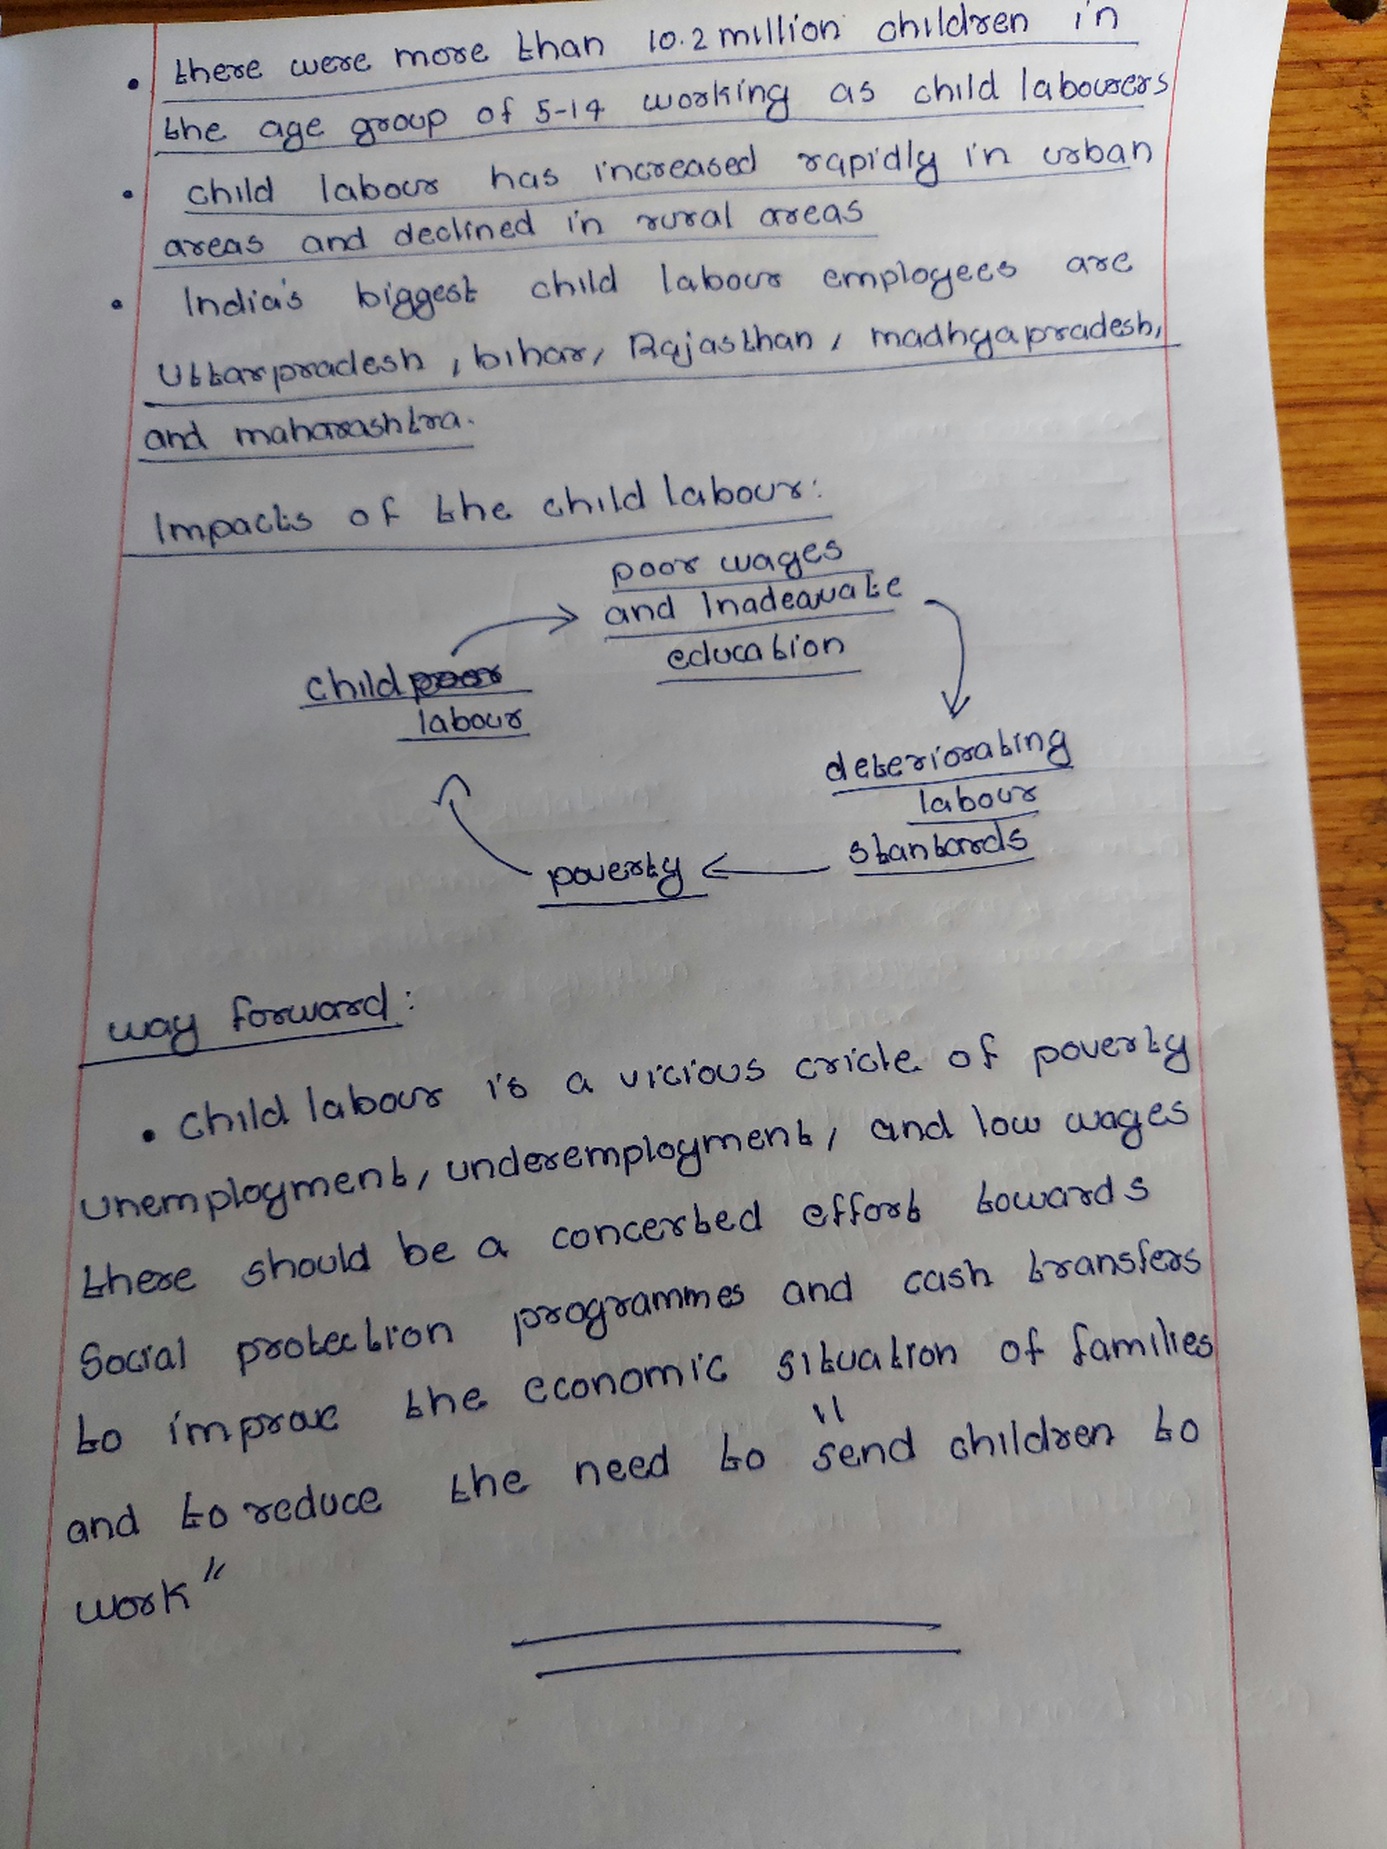 • there were more than 10.2 million children in
the age group of 5-14 working as child labourers
• child labour has increased rapidly in urban
areas and declined in rural areas
• India's biggest child labour employees are
Uttarpradesh, bihar, Rajasthan, madhyapradesh,
and maharashtra.
Impacts of the child labour:
poor wages
and Inadeauate
education
child poor
labour
deteriorating
labour
stantards
poverty
way forward:
• child labour is a vicious cricle of poverty
unemployment, underemployment, and low wages
there should be a concerted effort towards
Social protection programmes and cash transfers
to improve the economic situation of families
and to reduce the need to "send children to
work"